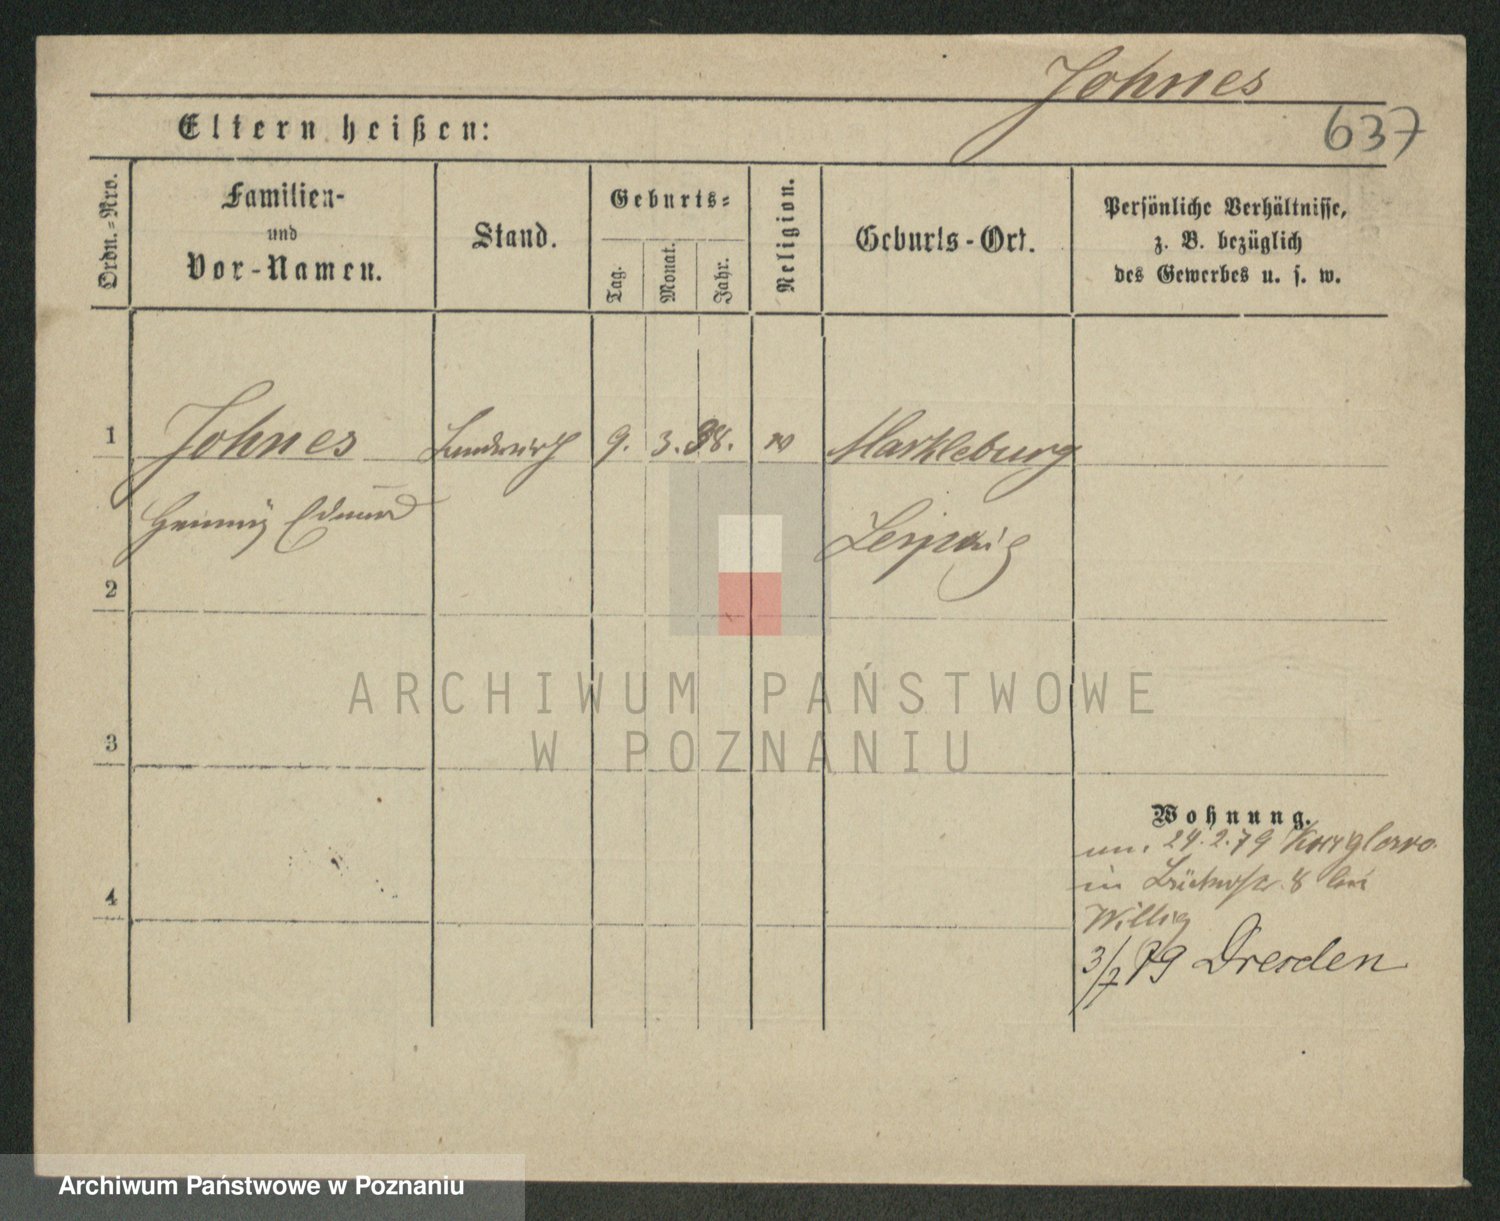 Johnes
637
Eltern heißen:
Ordn.-Nro.
Familien-
und
Vor-Namen.
Stand.
Geburts-
Tag.
Monat.
Jahr.
Religion.
Geburts-Ort.
Persönliche Verhältnisse,
z. B. bezüglich
des Gewerbes u. s. w.
1 Johnes Landwirth 9. 3. 38. Markleburg
Eduard Leipzig
2
ARCHIWUM PAŃSTWOWE
W POZNANIU
3
Wohnung.
24.2.79
4
in 8 bei
Willig
3/7 79 Dresden
Archiwum Państwowe w Poznaniu